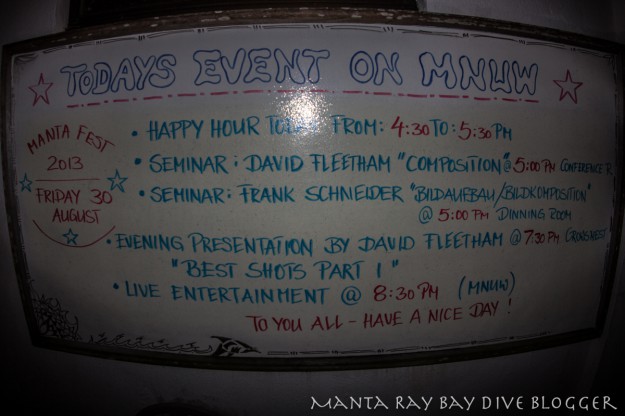 TODAYS EVENT ON MNUW
MANTA FEST
2013
FRIDAY 30
AUGUST
• HAPPY HOUR FROM: 4:30 TO: 5:30 PM
• SEMINAR: DAVID FLEETHAM "COMPOSITION" @ 5:00 PM CONFERENCE R.
• SEMINAR: FRANK SCHNEIDER "BILDAUFBAU/BILDKOMPOSITION"
@ 5:00 PM DINNING ROOM
• EVENING PRESENTATION BY DAVID FLEETHAM @ 7:30 PM CROWSNEST
"BEST SHOTS PART 1"
• LIVE ENTERTAINMENT @ 8:30 PM (MNUW)
TO YOU ALL - HAVE A NICE DAY!
MANTA RAY BAY DIVE BLOGGER